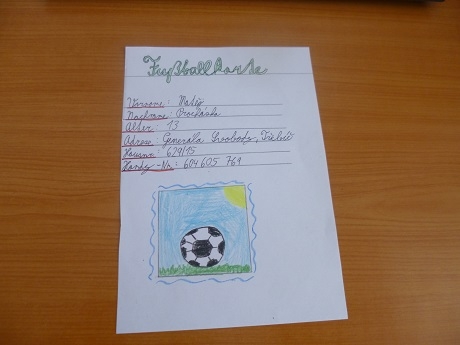 Fußballkarte
Vorname: Matěj
Nachname: Procházka
Alter: 13
Adress: Generála Svobody,
Hausnr.: 629/15
Handy-Nr.: 604 605 761